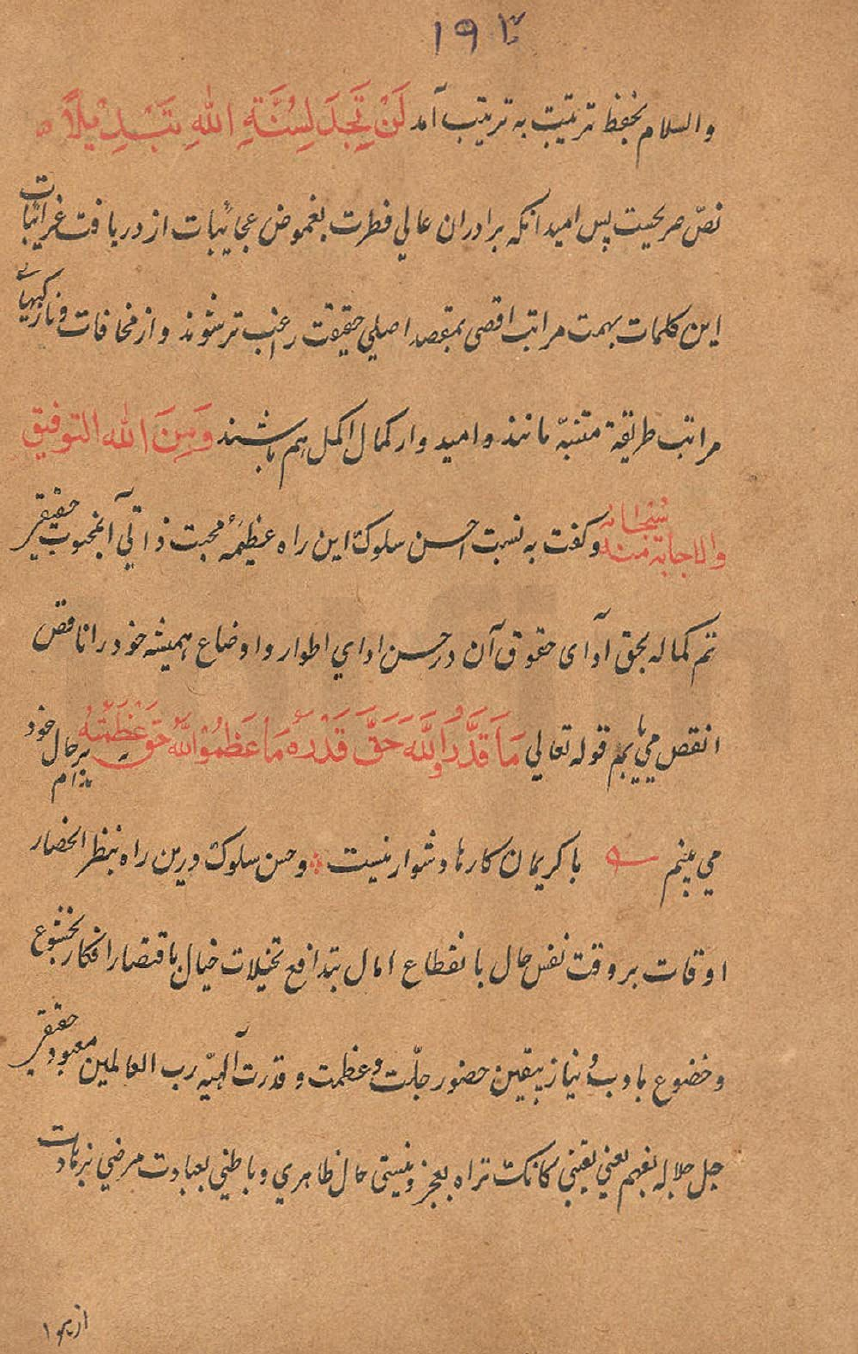 ۱۹۳
والسلام بحفظ تربیت به ترتیب آمد لَنْ تَجِدَ لِسُنَّةِ اللهِ تَبْدِیلاً
نصّ صریحیت پس امید آنکه برادران عالي فطرت بغموض عجائبات از دریافت غرائبات
این کلمات بهمت مراتب اقصی بمقصد اصلي حقیقت راغب تر شوند و از مخافات و نازکیهاے
مراتب طریقة متنبّه مانند و امیدوار کمال اکمل هم باشند وَمِنَ الله التوفیق
والاجابة منه سُبْحَانَه و گفت به نسبت احسن سلوک این راه عظیمهٔ محبت ذاتي آنمحبوب حقیقی
تم کماله بحق آدای حقوق آن در حسن ادای اطوار و اوضاع همیشه خود را ناقص
انقص می یابم قوله تعالي مَا قَدَّرُ وا للَّهَ حَقَّ قَدْرِهِ مَا عَظَمُوْ اللَّهَ حَقَّ عَظْمَتِهُ بر حال خود
مي بینم با کریمان کارها دشوار نیست و حسن سلوک درین راه بنظر انحصار
اوقات بر وقت نفس حال با نقطاع امال بتدافع تخیلات خیال باقتصار افکار بخشوع
و خضوع بادب و نیاز بیقین حضور جلّت و عظمت و قدرت آلهیّه رب العالمین معبود حقیقی
جل جلاله بفهم یعني یقیني کانک تراه بعجز و نیستی حال ظاهري و باطني بعبادت مرضي